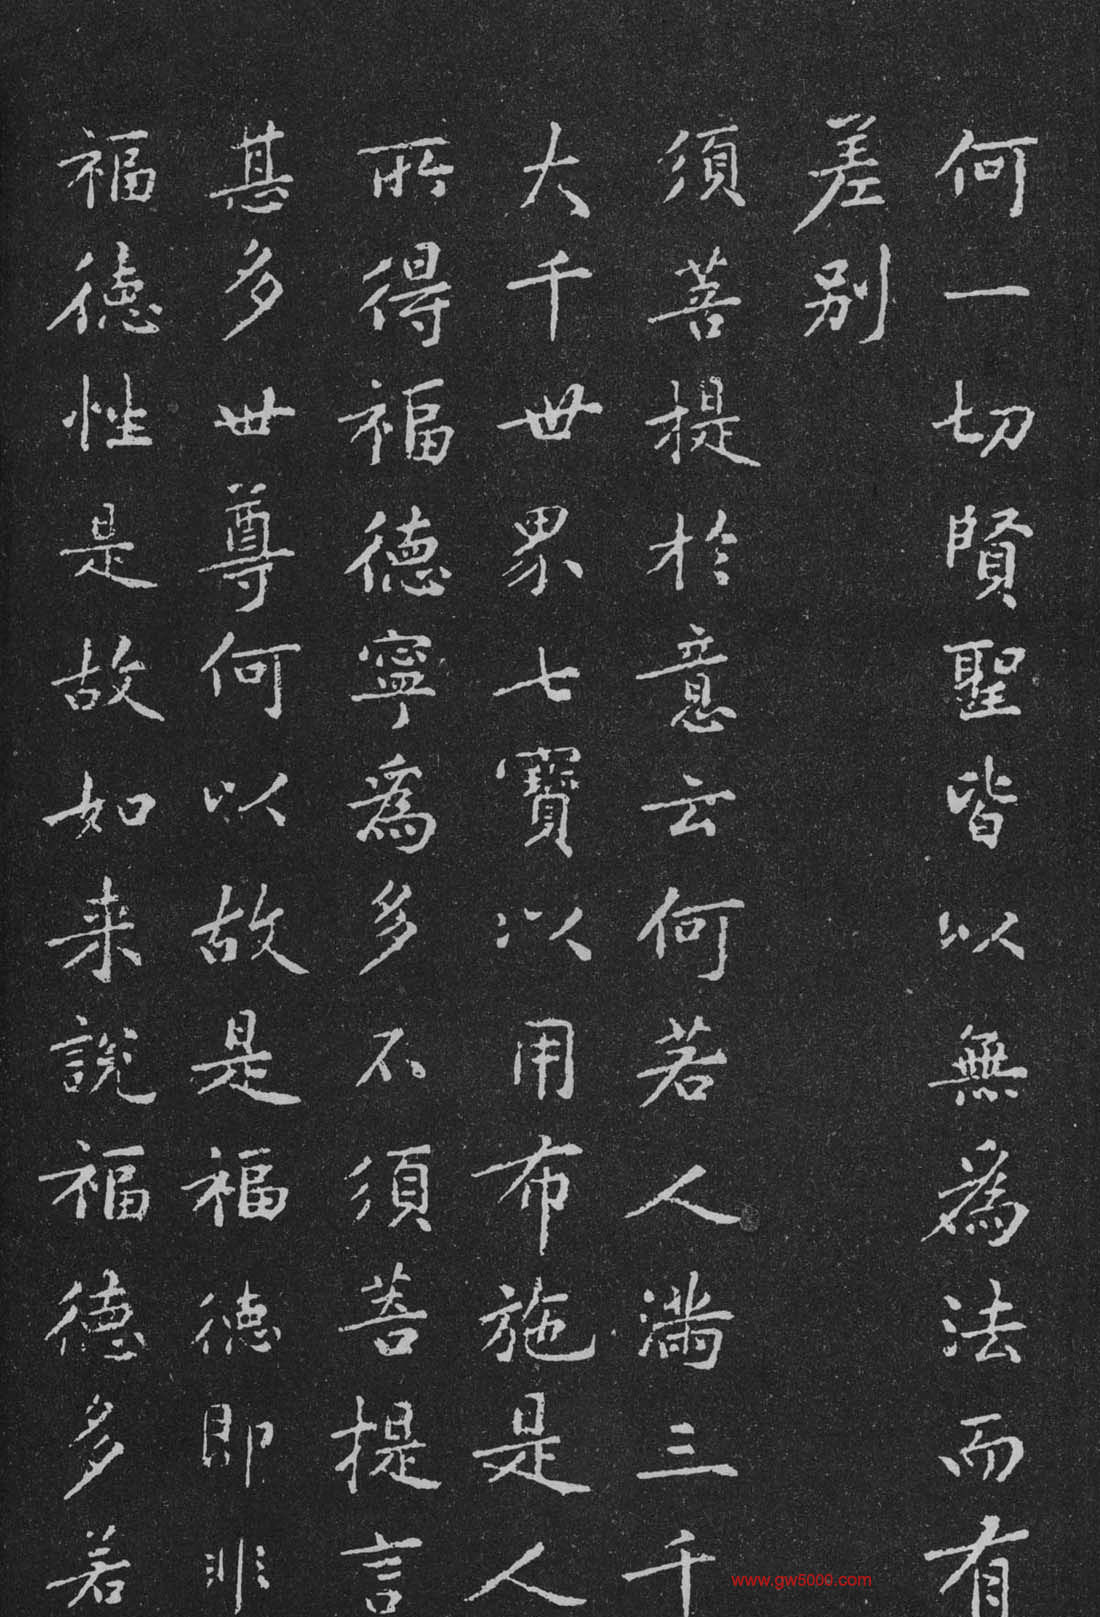 何一切賢聖皆以無為法而有
差別
須菩提於意云何若人滿三千
大千世界七寶以用布施是人
所得福德寧為多不須菩提言
甚多世尊何以故是福德即非
福德性是故如来說福德多若
www.gw5000.com